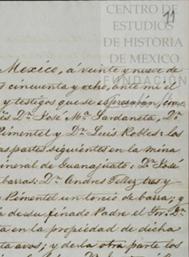 11
CENTRO DE
ESTUDIOS
DE HISTORIA
DE MEXICO
FUNDACIÓN
Mexico, á veinte y nueve de
cincuenta y ocho, ante mi el
y testigos que se espresarán, com
Dn. José Ma. Sardaneta, Dn.
Pimentel y Dn. Luis Robles: los
partes siguientes en la mina
mineral de Guanajuato, Dn. José
barras: Dn. Andres Tellez tres y
Pimentel un tercio de barra; y
de su finado Padre el Sr. Dn.
ta en la propiedad de dicha
avos; y de la otra parte los